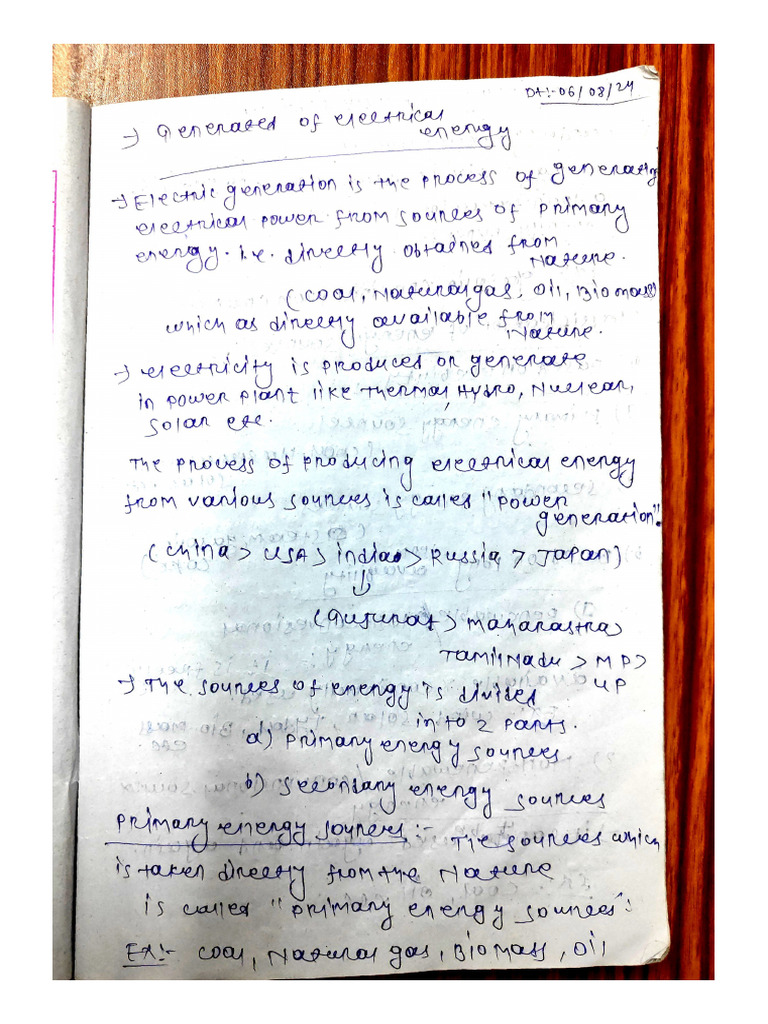 Dt:-06/08/24
→ Generated of electrical
energy
→ Electric generation is the process of generating
electrical power from sources of primary
energy. i.e. directly obtained from
Nature.
(coal, Natural gas, Oil, Biomass)
which as directly available from
Nature.
→ electricity is produced or generate
in power plant like thermal, Hydro, Nuclear,
solar etc.
The process of producing electrical energy
from various sources is called "power
generation".
(China > USA > india > Russia > Japan)
⇓
(Gujurat > maharastra >
TamilNadu > MP >
UP
→ The sources of energy is divided
in to 2 parts.
a) primary energy sources
b) secondary energy sources
primary energy sources :- The sources which
is taken directly from the Nature
is called "primary energy sources":
Ex:- coal, Natural gas, Biomass, Oil